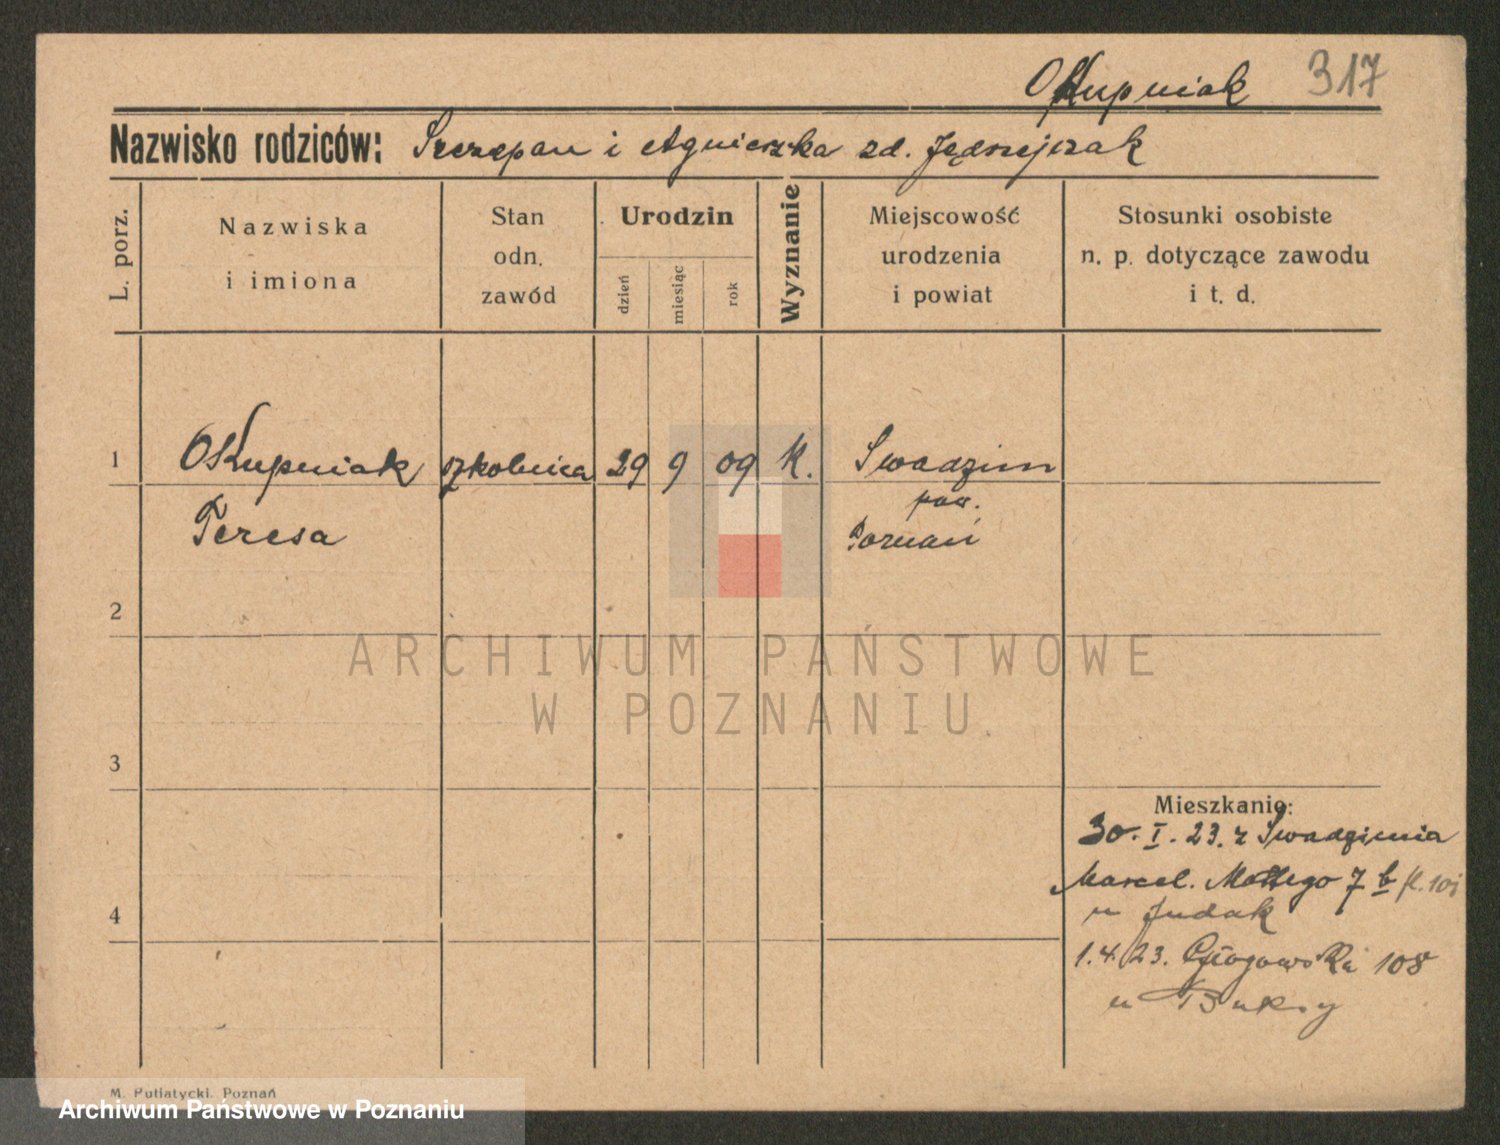 OKupniak 317
Nazwisko rodziców: Szczepan i Agnieszka zd. Jędrzejczak
L. porz.
Nazwiska
i imiona
Stan
odn.
zawód
Urodzin
dzień
miesiąc
rok
Wyznanie
Miejscowość
urodzenia
i powiat
Stosunki osobiste
n. p. dotyczące zawodu
i t. d.
1 OKupniak szkolnica 29 9 09 K. Swadzim
pow.
Teresa Poznań
2
ARCHIWUM PAŃSTWOWE
W POZNANIU
3
Mieszkanie:
30. I. 23. z Swadzimia
Marcel. Mottego 7 b
4
u Judak
1.4.23. Głogowska 108
u Buksy
M. Putiatycki. Poznań
Archiwum Państwowe w Poznaniu